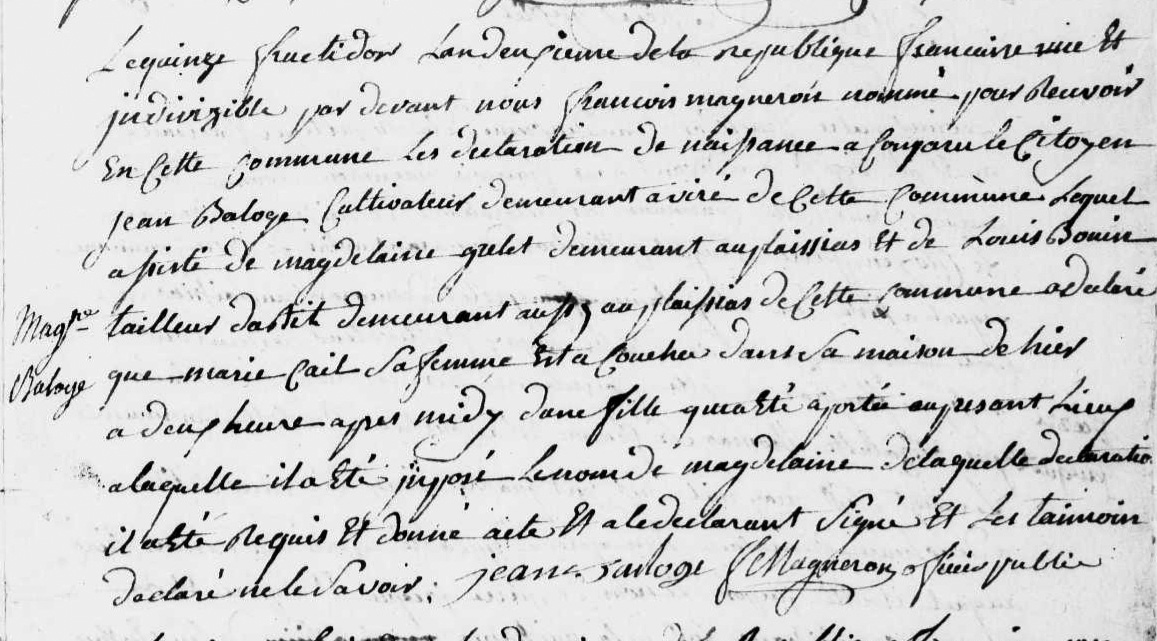 Le quinze fructidor Lan deuxieme de la republique francaise une Et
indivizible par devant nous francois magneron nommé pour Recevoir
En Cette commune Les declaration de naissance a Comparu le Citoyen
jean Baloge Cultivateur demeurant a viré de Cette Commune Lequel
assisté de magdelaine grelet demeurant au plaissias Et de Louis Bouin
Magne tailleur dabit demeurant aussy au plaissias de Cette commune a declaré
Baloge que marie Cail Sa femme Est acouchee dans Sa maison de hier
a deux heure apres midy dune fille qui a Eté aportée au presant Lieux
a laquelle il a Eté inposé Le nom de magdelaine de laquelle declaratio
il a Eté Requis Et donné acte Et a le declarant Signé Et Les taimoin
declaré ne le Savoir. jean Baloge F Magneron officié publie